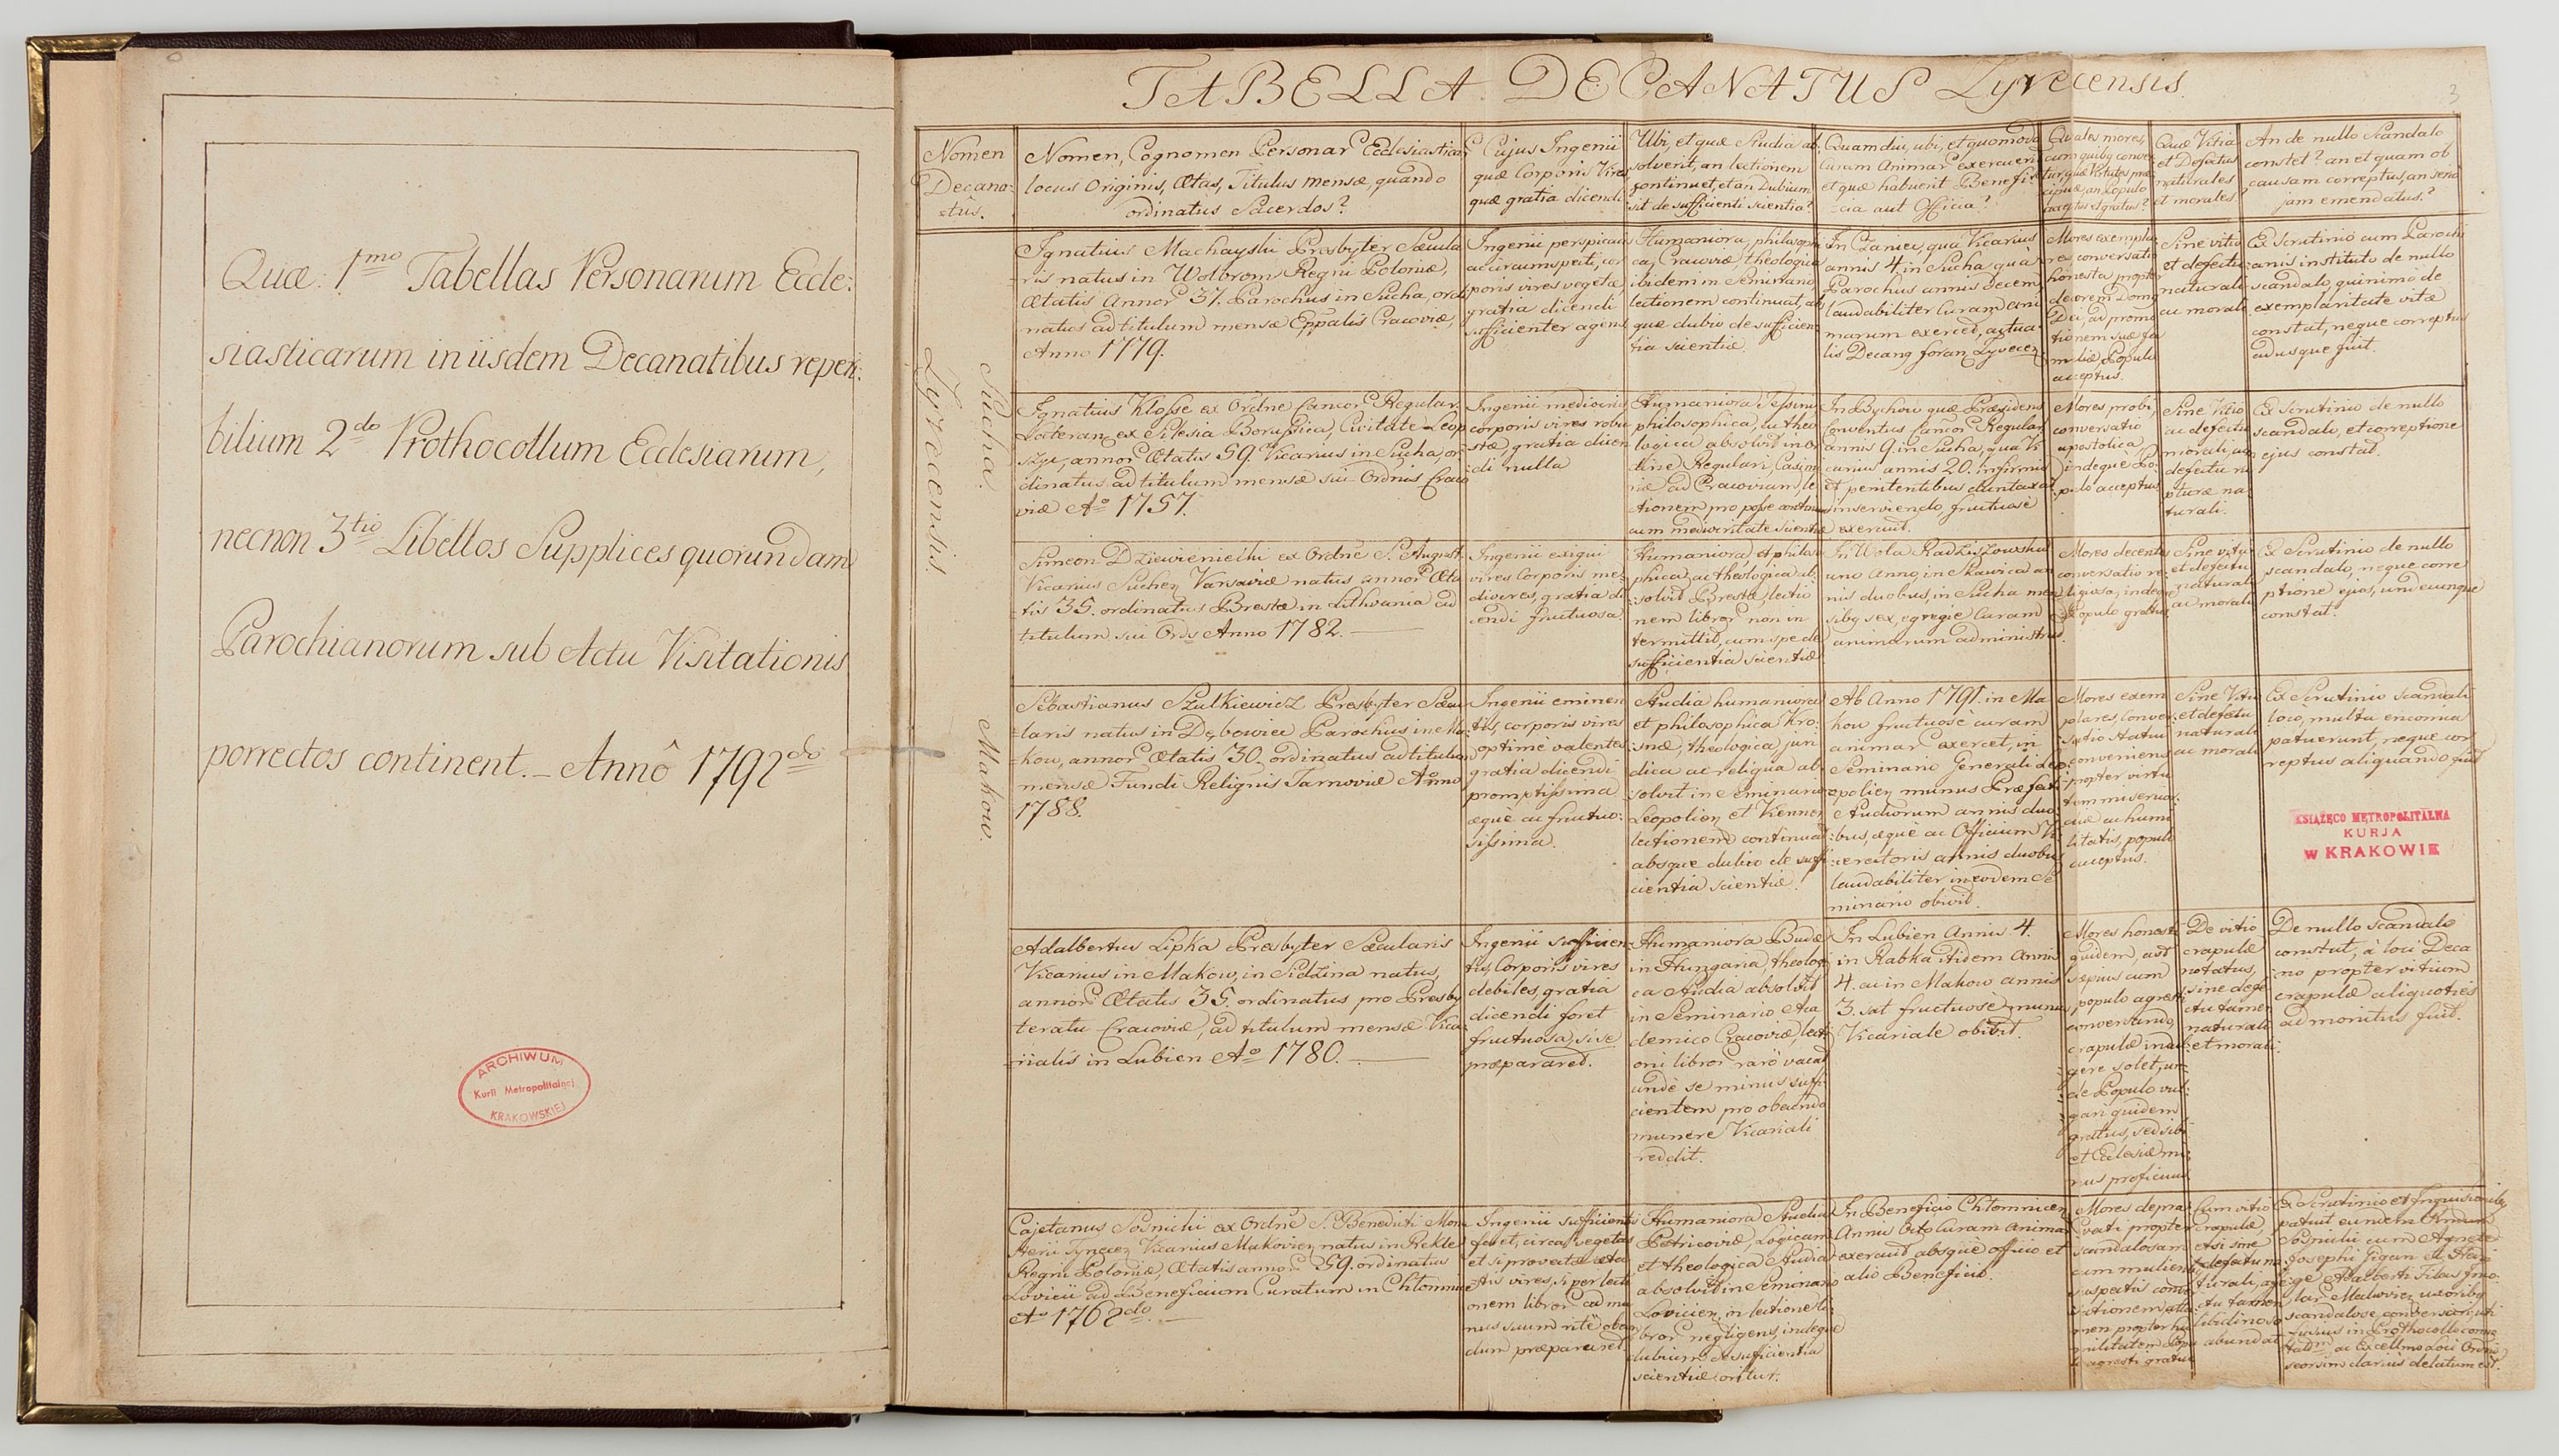 Quæ: 1mo Tabellas Personarum Eccle:
siasticarum in iisdem Decanatibus reperi:
bilium 2do Prothocollum Ecclesiarum,
necnon 3tio Libellos Supplices quorundam
Parochianorum sub Actu Visitationis
porrectos continent. – Annô 1792do
ARCHIWUM
Kurii Metropolitalnej
KRAKOWSKIEJ
TABELLA DECANATUS Zyvecensis
3
Nomen
Decana:
tûs.
Nomen, Cognomen Personar Ecclesiastica
locus Originis, Ætas, Titulus mensæ, quando
ordinatus Sacerdos?
Cujus Ingenii
quæ Corporis Vires
quæ gratia dicendi
Ubi, et quæ Studia ab:
solverit, an lectionem
continuet, et an Dubium
sit de sufficienti scientia?
Quamdiu, ubi, et quomodo
Curam Animar exercuerit
et quæ habuerit Benefi:
cia aut Officia?
Quales mores,
cum quibq conver
tur, quæ Virtutes præ
cipuæ, an Populo
acceptus et gratus?
Quæ Vitia
et Defectus
naturales
et morales
An de nullo Scandalo
constet? an et quam ob
causam correptus, an serio
jam emendatus?
Zyvecensis.
Sucha.
Ignatius Machayski Presbyter Sæcula
ris natus in Wolbrom Regni Poloniæ,
Ætatis Annor 37. Parochus in Sucha, ordi
natus ad titulum mensæ Eppalis Cracoviæ,
Anno 1779.
Ingenii perspicacis
ac circumspecti, cor
poris vires vegetæ
gratia dicendi
sufficienter agens
Humaniora, philosophi
ca, Cracoviæ, theologica
ibidem in Seminario,
lectionem continuat, abs
que dubio de sufficien
tia scientiæ.
In Zaniec, qua Vicarius
annis 4. in Sucha qua
Parochus annis decem
laudabiliter Curam ani
marum exercet, actua
lis Decang foran Zyvecen
Mores exempla
res conversatio
honesta, propter
decorem Domg
Dei, ad promo
tionem suæ fa
miliæ Populo
acceptus.
Sine vitio
et defectu
naturali
ac morali
Ex Scrutinio cum Parochi
anis instituto de nullo
scandalo, quinimo de
exemplaritate vitæ
constat, neque correptus
adusque fuit.
Ignatius Klosse ex Ordne Canor Regular
Lateran, ex Silesia Borussica, Civitate Leop
szyc, annor Ætatis 59. Vicarius in Sucha, or
dinatus ad titulum mensæ sui Ordnis Craco
viæ Ao 1757.
Ingenii mediocris
corporis vires robu
stæ, gratia dicen
di nulla
philosophica, ac theo
logica absolvit in Or
dine Regulari Casimi
riæ ad Cracoviam, le
ctionem pro posse continu
cum mediocritate scientiæ
In Bychow qua Præsidens
Conventus Canor Regular
annis 9. in Sucha, qua Vi
carius annis 20. infirmis
et penitentibus duntaxat
inserviendo, fructuose
exercuit.
Mores probi,
conversatio
apostolica,
indeque Po:
pulo acceptus
Sine Vitio
ac defectu
morali, cum
defectu ru
pturæ na
turali.
Ex Scrutinio de nullo
scandalo, et correptione
ejus constat.
Simeon Dziewieniecki ex Ordne S. August
Vicarius Suchen, Varsaviæ natus annor Æta
tis 35. ordinatus Brestæ in Lithvania ad
titulum sui Ords Anno 1782.
Ingenii exigui
vires Corporis me
diocres, gratia di
cendi fructuosa.
Humaniora, et philoso
phica, ac theologica ab
solvit Brestæ, lectio
nem libror non in
termittit, cum spe de
sufficientia scientiæ
In Wola Radziszowska
uno Anno, in Skawica an
nis duobus, in Sucha men
sibg sex, egregie Curam
animarum administrat.
Mores decentes
conversatio re
ligiosa, indeque
Populo gratus
Sine vitio
et defectu
naturali
ac morali
Ex Scrutinio de nullo
scandalo, neque corre
ptione ejus, undecunque
constat.
Makow.
Sebastianus Szulkiewicz Presbyter Sæcu
laris natus in Dębowiec Parochus in Ma
kow, annor Ætatis 30. ordinatus ad titulum
mensæ Fundi Relignis Tarnoviæ Anno
1788.
Ingenii eminen
tis, corporis vires
optime valentes
gratia dicendi
promptissima
æque ac fructuo:
sissima.
Studia humaniora
et philosophica Kro:
snæ, theologica, juri
dica ac reliqua ab
solvit in Seminario
Leopolien et Viennen
lectionem continuat
absque dubio de suffi
cientia scientiæ.
Ab Anno 1791. in Ma
kow fructuose curam
animar exercet, in
Seminario Generali Leo
polien munus Præfecti
Studiorum annis duo
bus, æque ac Officium Vi
cerectoris annis duobus
laudabiliter in eodem Se
minario obivit.
Mores exem
plares, Conver
satio statui
conveniens
propter virtu
tem misericor
diæ ac humi
litatis, populo
acceptus.
Sine Vitio
et defectu
naturali
ac morali
Ex Scrutinio scandali
loco, multa encomia
patuerunt, neque cor
reptus aliquando fuit
KSIĄŻĘCO METROPOLITALNA
KURJA
W KRAKOWIE
Adalbertus Lipka Presbyter Sæcularis
Vicarius in Makow, in Sidzina natus,
annor Ætatis 35. ordinatus pro Presby
teratu Cracoviæ, ad titulum mensæ Vica
rialis in Lubien Ao 1780.
Ingenii sufficien
tis, Corporis vires
debiles, gratia
dicendi foret
fructuosa, si se
præpararet.
Humaniora Budæ
in Hungaria, theologi
ca Studia absolvit
in Seminario Aca
demico Cracoviæ, lecti
oni libror raro vacat
unde se minus suffi
cientem pro obeundo
munere Vicariali
reddit.
In Lubien Annis 4.
in Rabka itidem Annis
4. ac in Makow annis
3. sat fructuose munus
Vicariale obivit
Mores honesti
quidem, ast
sæpius cum
populo agresti
conversando,
crapulæ indul
gere solet, un
de Populo vul
gari quidem
gratus, sed sibi
et Ecclesiæ mi
nus proficuus
De vitio
crapulæ
notatus,
sine defe
ctu tamen
naturali
et morali.
De nullo scandalo
constat, à loci Deca
no propter vitium
crapulæ aliquoties
admonitus fuit.
Cajetanus Sosnicki ex Ordne S. Benedicti Mona
sterii Tynecen Vicarius Makovien, natus in Rekle
Regni Poloniæ, Ætatis annor 59. ordinatus
Lovicii ad Beneficium Curatum in Chtomnice
Ao 1762do
Ingenii sufficientis
foret, circa vegetas
et si provectæ æta
tis vires, si per lecti
onem libror ad mu
nus suum rite obeun
dum præpararet
Humaniora Studia
Petricoviæ, Logicam
et theologica Studia
absolvit in Seminario
Lovicien, in lectione li
bror negligens, indeque
dubium de sufficientia
scientiæ oritur.
In Beneficio Chtomnicen
Annis octo Curam Animar
exercuit absque officio et
alio Beneficio.
Mores depra
vati propter
scandalosam
cum muliere
suspecta conver
sationem, atta
men propter hu
militatem Popu
lo agresti gratus
Cum vitio
Crapulæ,
etsi sine
defectu na
turali, a
ctu tamen
libidinoso
abundat
Ex Scrutinio et Inquisitionibg
patuit eundem Rndum
Sosnicki cum Agnete
scandalose conversari, uti
fusius in Prothocollo
seorsim clarius delatum est.